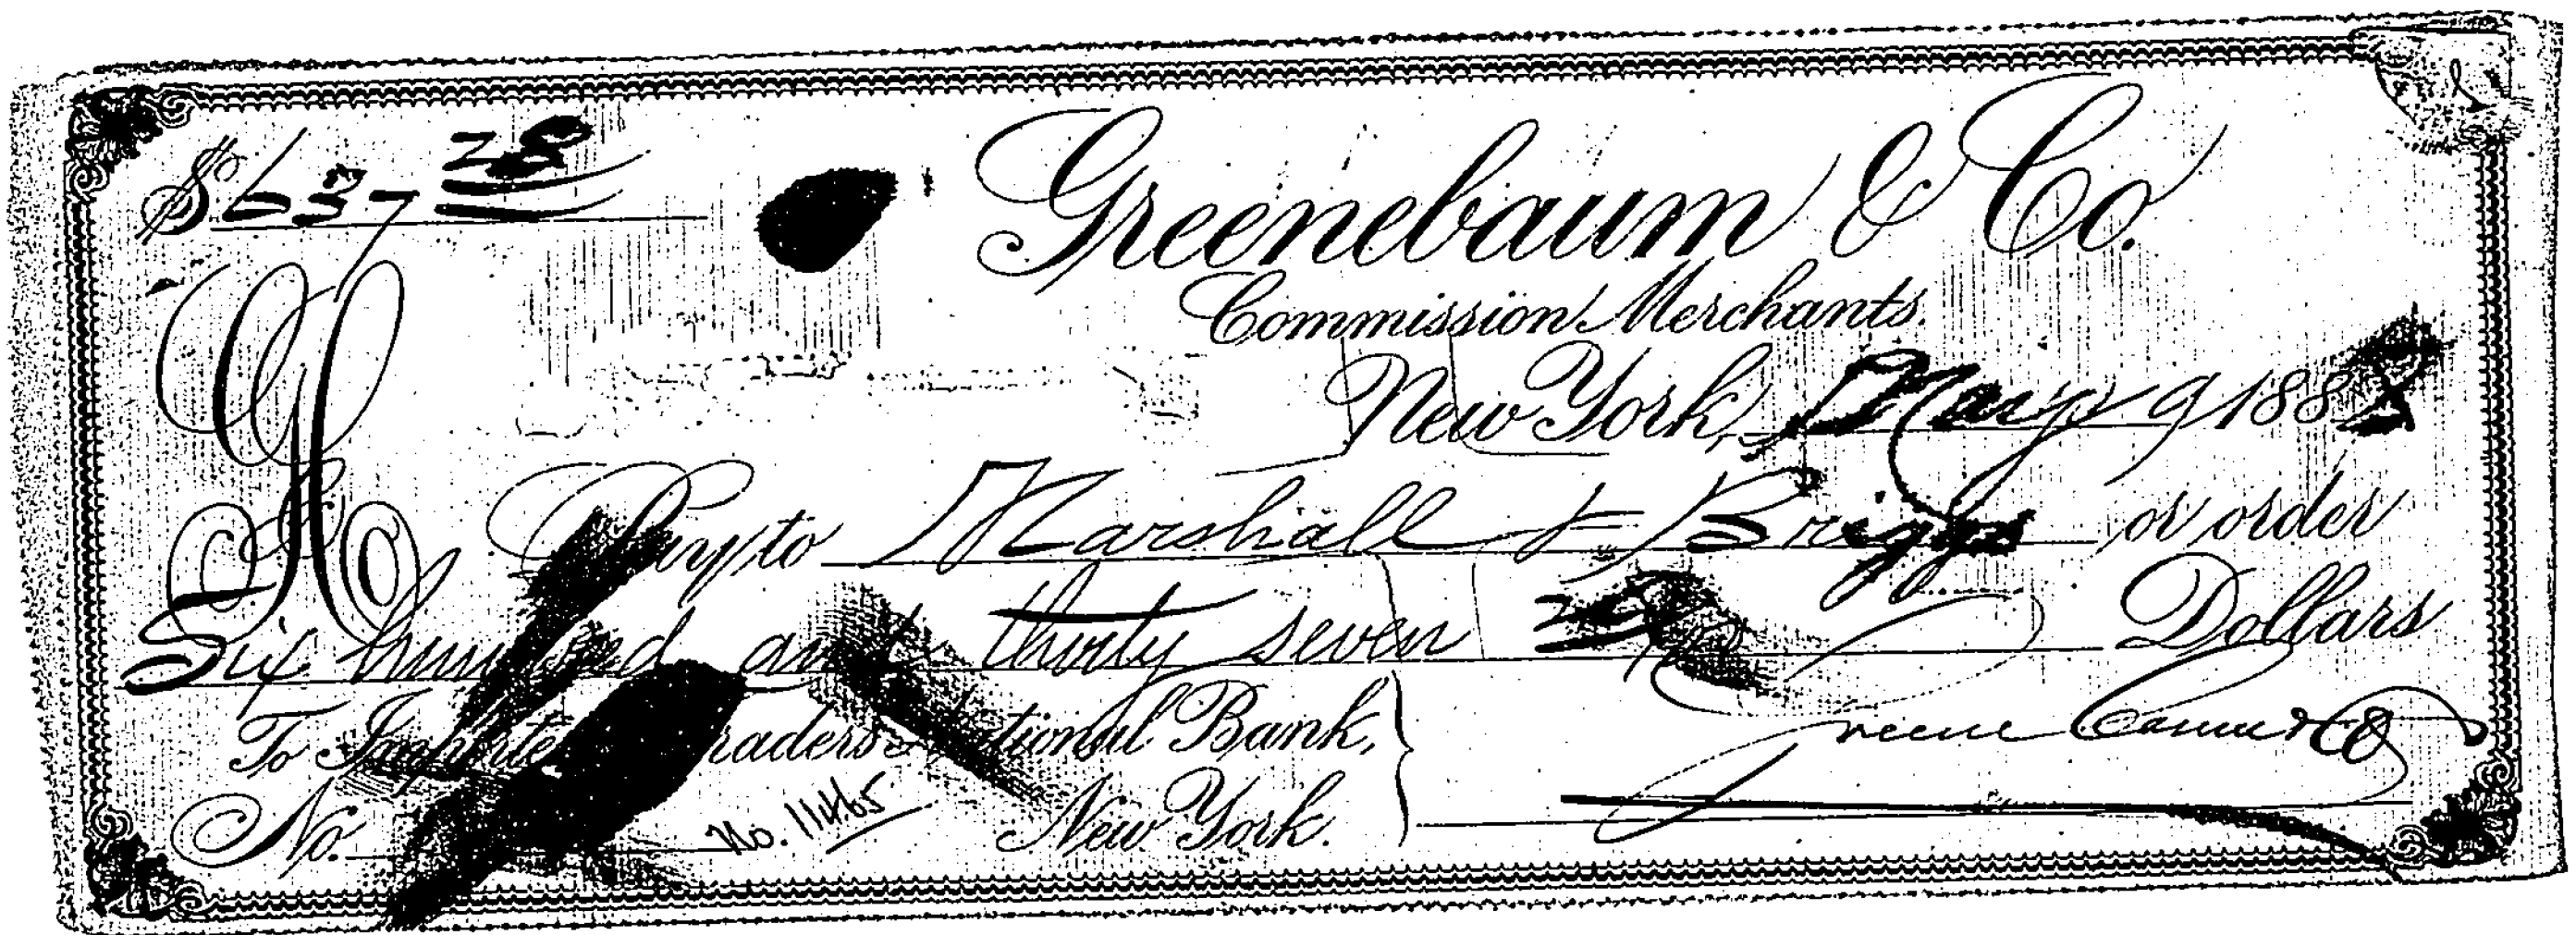 $637 28
Greenebaum & Co.
Commission Merchants.
New York, May 9 188
Pay to Marshall & Briggs or order
Six hundred and thirty seven Dollars
To Importers Traders National Bank,
No. No. 11465 New York.